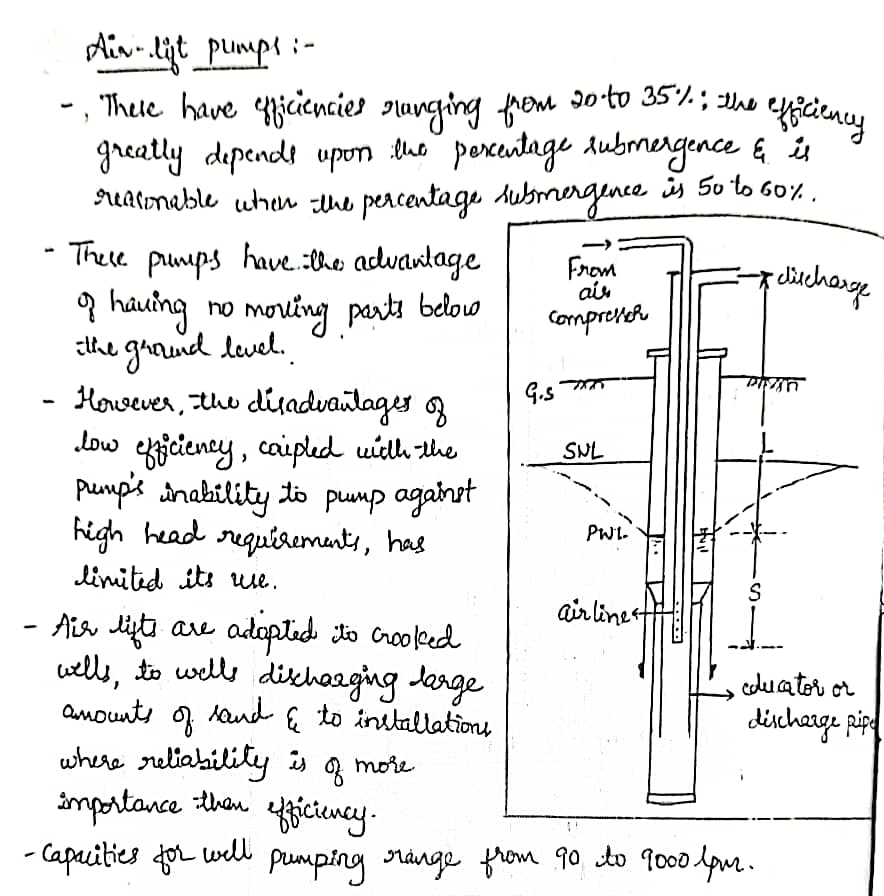 Air-lift pumps :-
-, These have efficiencies ranging from 20 to 35%; the efficiency
greatly depends upon the percentage submergence & is
reasonable when the percentage submergence is 50 to 60%.
- These pumps have the advantage
of having no moving parts below
the ground level.
- However, the disadvantages of
low efficiency, coupled with the
pump's inability to pump against
high head requirements, has
limited its use.
- Air lifts are adapted to crooked
wells, to wells discharging large
amounts of sand & to installations
where reliability is of more
importance than efficiency.
- Capacities for well pumping range from 90 to 9000 lpm.
From
air
compressor
discharge
G.S
SWL
L
PWL
S
airline
eductor or
discharge pipe